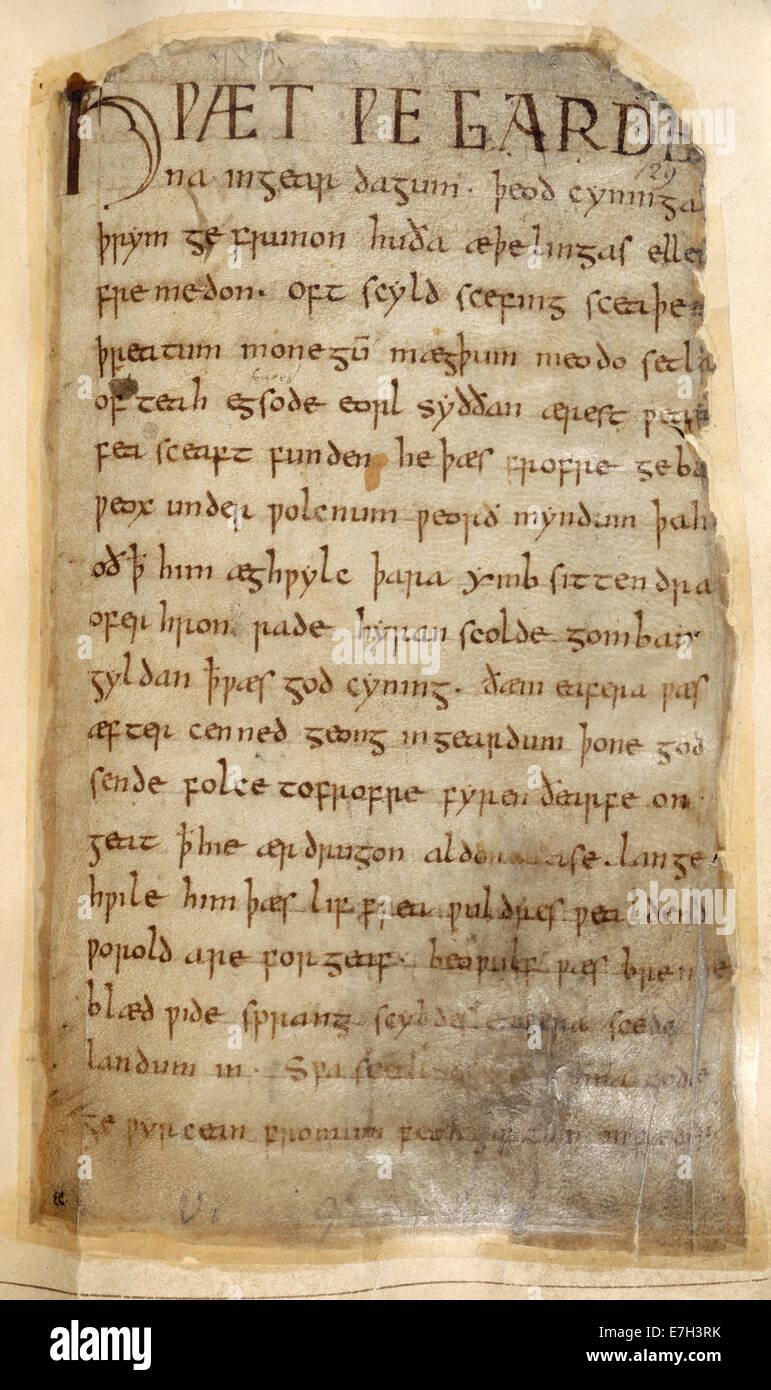 HǷÆT ǷE GARDE
129
na ingear dagum. þeod cyninga
þrym ge frunon huða æþelingas elle
fremedon. oft scyld scefing sceaþe
þreatum monegū mægþum meodo setla
of teah egsode eorl syððan ærest ƿear
fea sceaft funden he þæs frofre geba
ƿeox under ƿolcnum ƿeorð myndum þah
oð ꝥ him æghƿylc þara ymb sittendra
ofer hron rade hyran scolde gomban
gyldan ꝥ ƿæs god cyning. ðæm eafera ƿæs
æfter cenned geong ingeardum þone god
sende folce tofrofre fyren ðearfe on
geat ꝥ hie ær drugon aldor ase. lange
hƿile him þæs lif frea ƿuldres ƿealdend
ƿorold are for geaf. beoƿulf ƿæs breme
blæd ƿide sprang scyldes eafera scede
landum in. Sƿa gode
ge ƿyrcean fromum
alamy
Image ID: E7H3RK
www.alamy.com